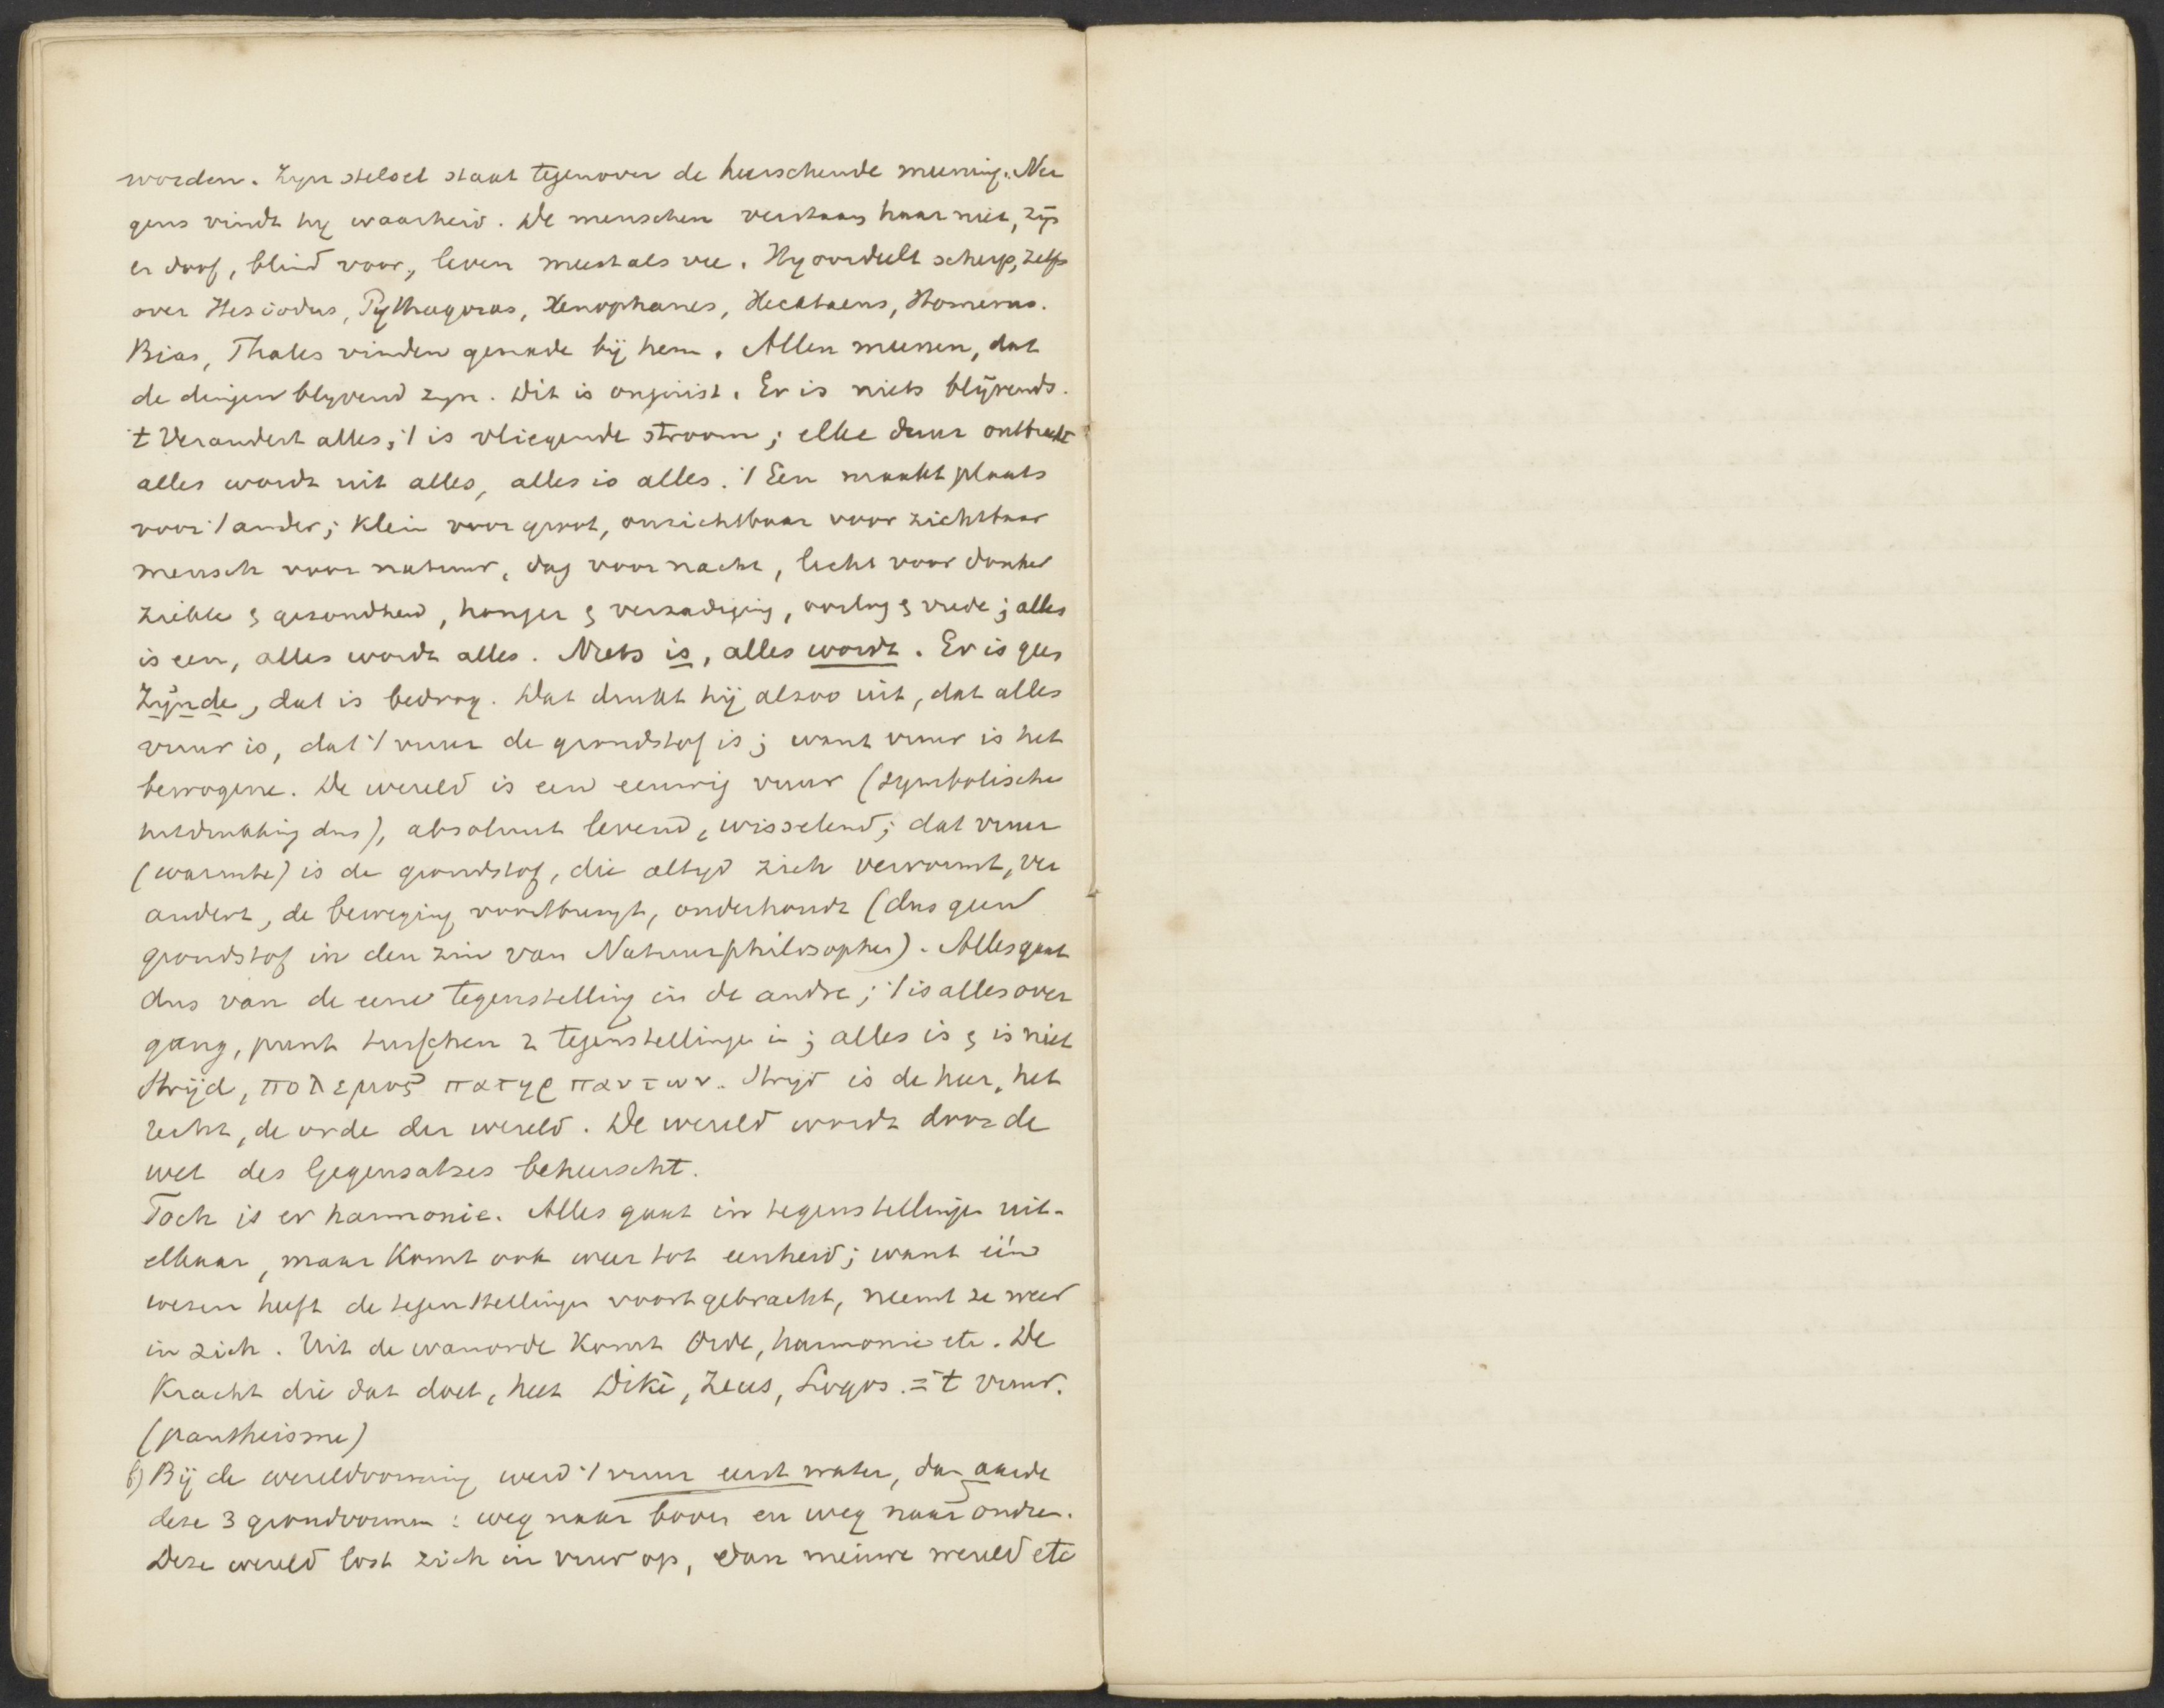 worden. Zijn stelsel staat tegenover de heerschende meening. Ner
gens vindt hij waarheid. De menschen verstaan haar niet, zijn
er doof, blind voor, leven meest als vee. Hij oordeelt scherp, zelfs
over Hesiodus, Pythagoras, Xenophanes, Hecataeus, Homerus.
Bias, Thales vinden genade bij hem. Allen meenen, dat
de dingen blijvend zijn. Dit is onjuist. Er is niets blijvends.
't Verandert alles; 't is vliegende stroom; elke duur ontbreekt
alles wordt uit alles, alles is alles. 't Een maakt plaats
voor 't ander; klein voor groot, onzichtbaar voor zichtbaar
mensch voor natuur, dag voor nacht, licht voor donker
ziekte & gezondheid, honger & verzadiging, oorlog & vrede; alles
is een, alles wordt alles. Niets is, alles wordt. Er is geen
Zijnde, dat is bedrog. Dat drukt hij alzoo uit, dat alles
vuur is, dat 't vuur de grondstof is; want vuur is het
bewogene. De wereld is een eeuwig vuur (symbolische
uitdrukking dus), absoluut levend, wisselend; dat vuur
(warmte) is de grondstof, die altijd zich vervormt, ver
andert, de beweging voortbrengt, onderhoudt (dus geen
grondstof in den zin van Natuurphilosophen). Alles gaat
dus van de eene tegenstelling in de andre; 't is alles over
gang, punt tusschen 2 tegenstellingen in; alles is & is niet
Strijd, πολεμος πατηρ παντων. Strijd is de heer, het
recht, de orde der wereld. De wereld wordt door de
wet des Gegensatzes beheerscht.
Toch is er harmonie. Alles gaat in tegenstellingen uit-
elkaar, maar komt ook weer tot eenheid; want één
wezen heeft de tegenstellingen voortgebracht, neemt ze weer
in zich. Uit de wanorde komt Orde, harmonie etc. De
Kracht die dat doet, heet Dikè, Zeus, Logos. = 't vuur.
(pantheisme)
b) Bij de wereldvorming werd 't vuur eerst water, dan aarde
deze 3 grondvormen: weg naar boven en weg naar ondren.
Deze wereld lost zich in vuur op, dan nieuwe wereld etc